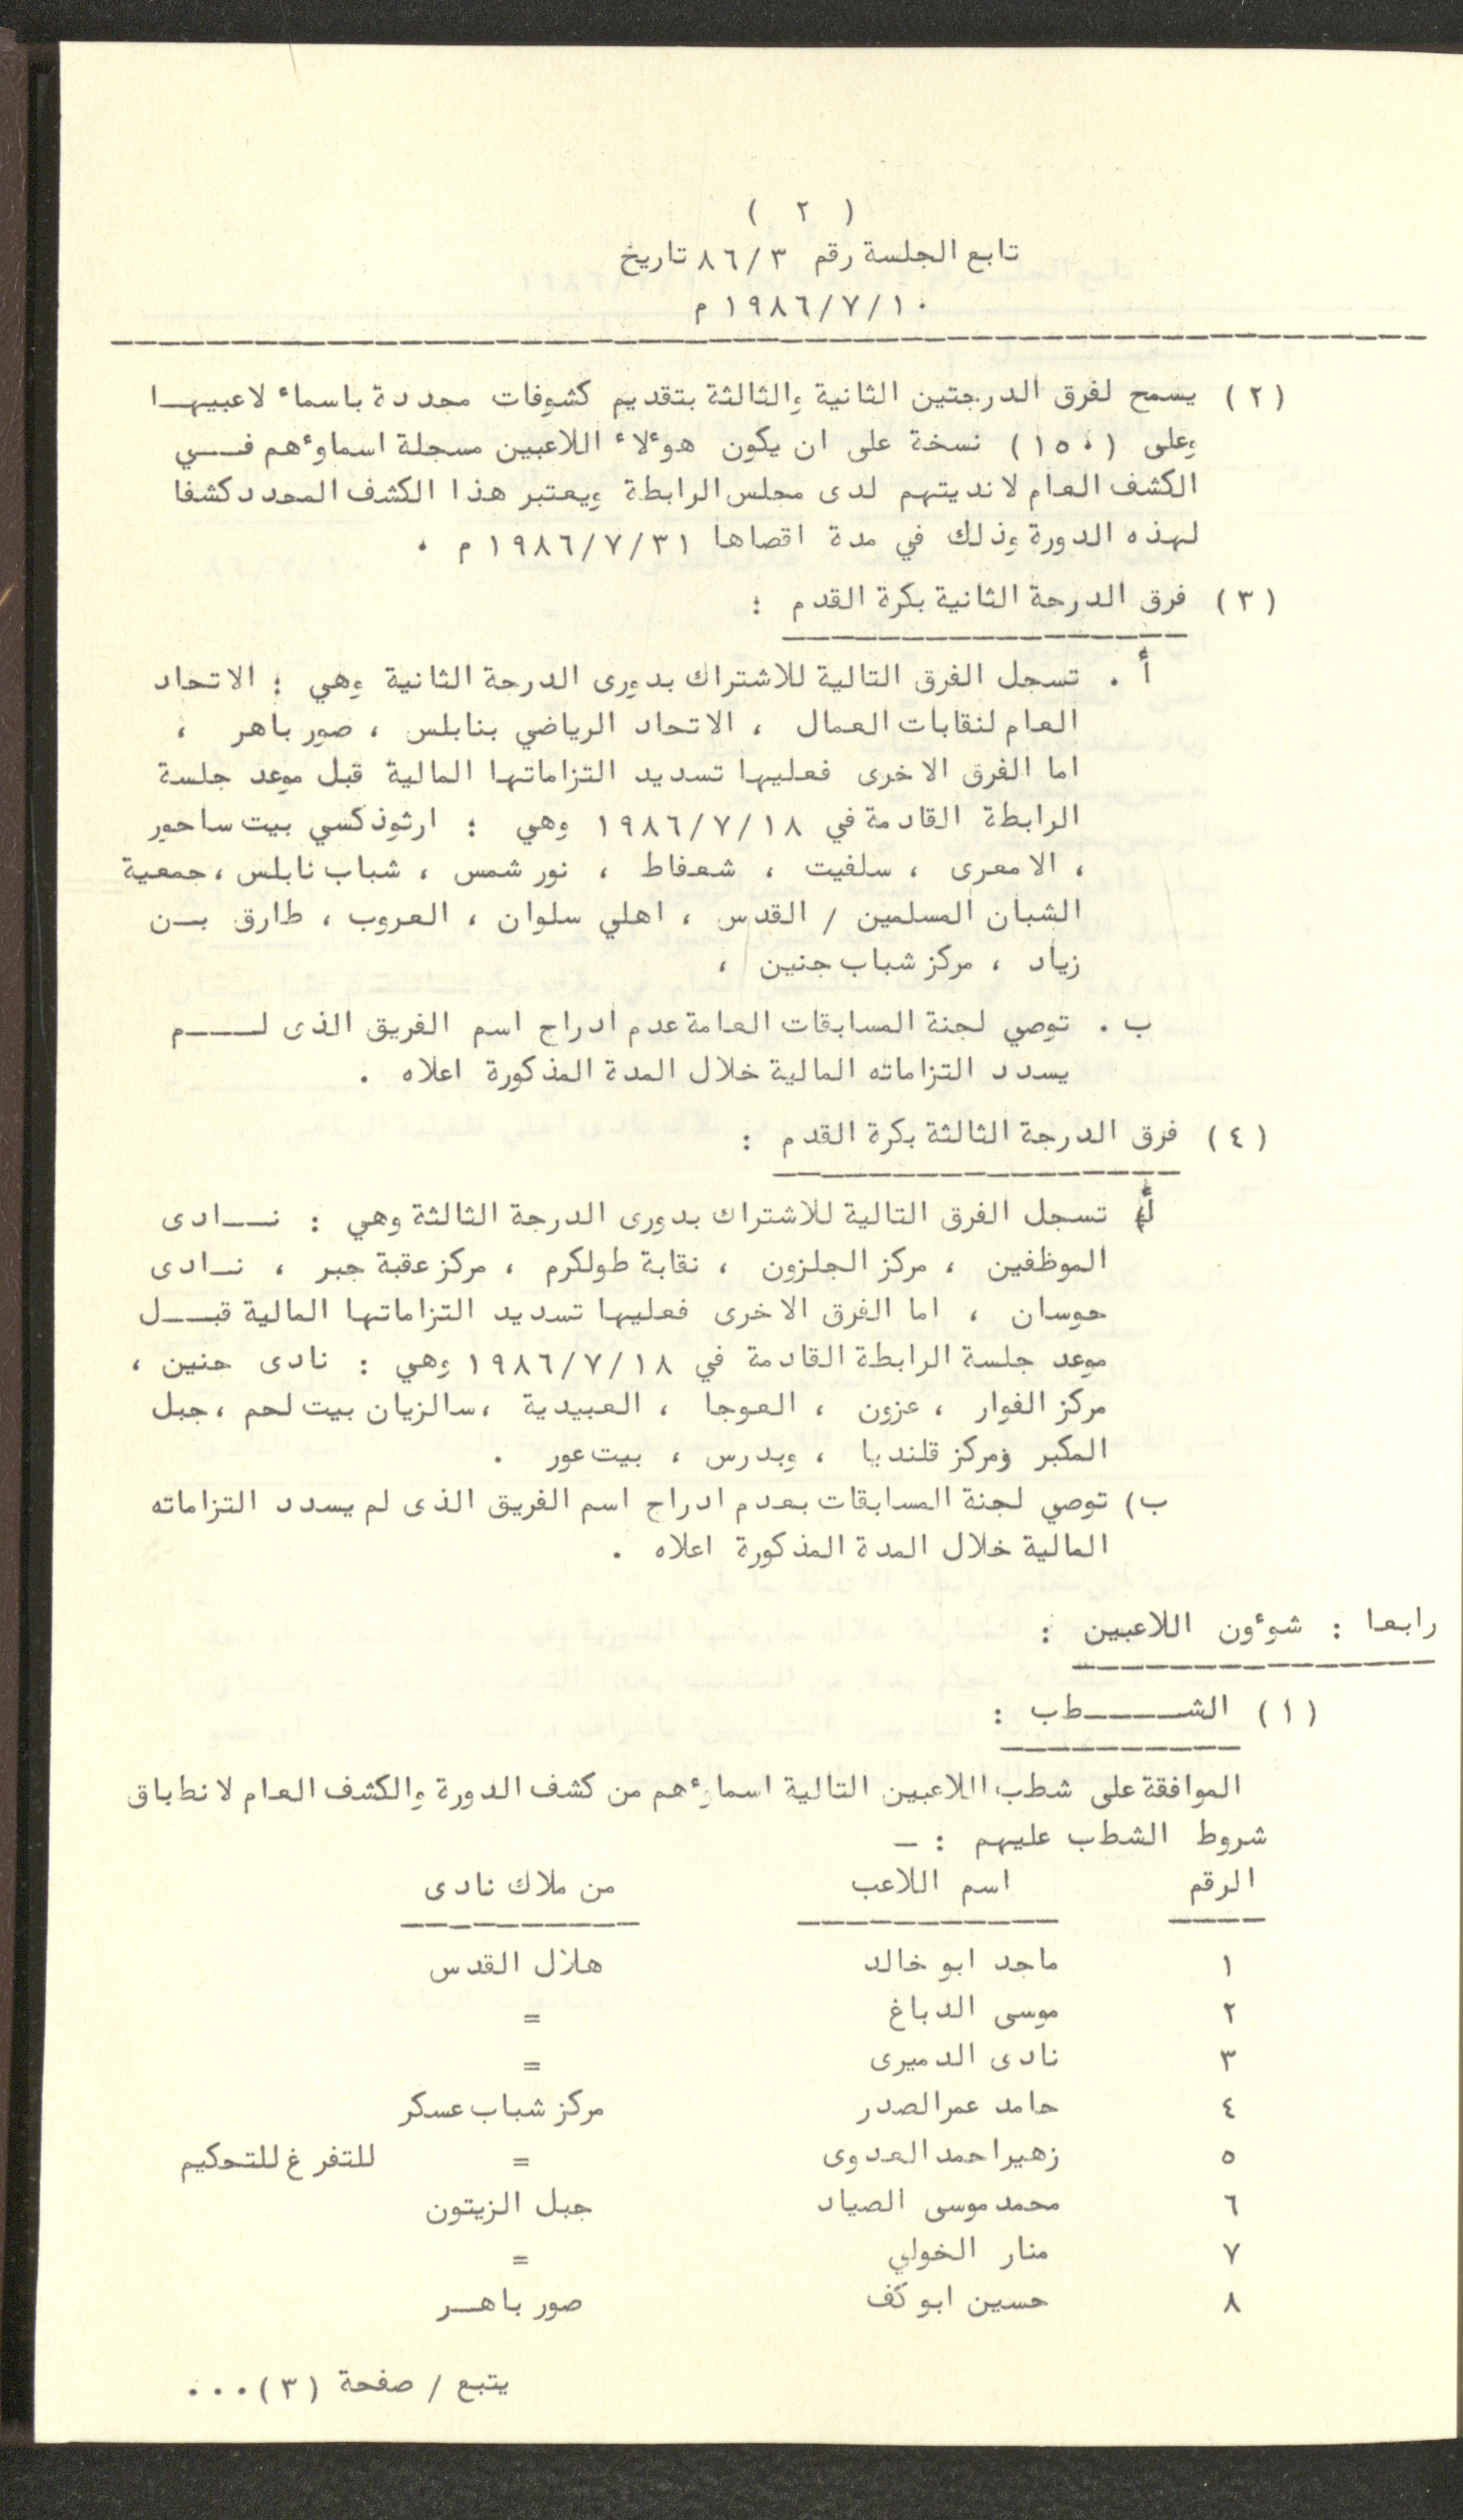 ( ٢ )
تابع الجلسة رقم ٨٦/٣ تاريخ
١٩٨٦/٧/١٠ م
(٢) يسمح لفرق الدرجتين الثانية والثالثة بتقديم كشوفات محددة باسماء لاعبيهـا
وعلى (١٥٠) نسخة على ان يكون هوءلاء اللاعبين مسجلة اسماوءهم فــي
الكشف العام لانديتهم لدى مجلس الرابطة ويعتبر هذا الكشف المحدد كشفا
لهذه الدورة وذلك في مدة اقصاها ١٩٨٦/٧/٣١ م .
(٣) فرق الدرجة الثانية بكرة القدم :
أ . تسجل الفرق التالية للاشتراك بدورى الدرجة الثانية وهي : الاتحاد
العام لنقابات العمال ، الاتحاد الرياضي بنابلس ، صور باهر ،
اما الفرق الاخرى فعليها تسديد التزاماتها المالية قبل موعد جلسة
الرابطة القادمة في ١٩٨٦/٧/١٨ وهي : ارثوذكسي بيت ساحور
، الامعرى ، سلفيت ، شعفاط ، نور شمس ، شباب نابلس ، جمعية
الشبان المسلمين / القدس ، اهلي سلوان ، العروب ، طارق بـن
زياد ، مركز شباب جنين ،
ب . توصي لجنة المسابقات العامة عدم ادراج اسم الفريق الذى لــــم
يسدد التزاماته المالية خلال المدة المذكورة اعلاه .
(٤) فرق الدرجة الثالثة بكرة القدم :
أ) تسجل الفرق التالية للاشتراك بدورى الدرجة الثالثة وهي : نــادى
الموظفين ، مركز الجلزون ، نقابة طولكرم ، مركز عقبة جبر ، نـادى
حوسان ، اما الفرق الاخرى فعليها تسديد التزاماتها المالية قبــل
موعد جلسة الرابطة القادمة في ١٩٨٦/٧/١٨ وهي : نادى جنين ،
مركز الفوار ، عزون ، العوجا ، العبيدية ، سالزيان بيت لحم ، جبل
المكبر ومركز قلنديا ، وبدرس ، بيت عور .
ب) توصي لجنة المسابقات بعدم ادراج اسم الفريق الذى لم يسدد التزاماته
المالية خلال المدة المذكورة اعلاه .
رابعا : شوءون اللاعبين :
(١) الشــــطب :
الموافقة على شطب اللاعبين التالية اسماوءهم من كشف الدورة والكشف العام لانطباق
شروط الشطب عليهم : -
الرقم اسم اللاعب من ملاك نادى
١ ماجد ابو خالد هلال القدس
٢ موسى الدباغ =
٣ نادى الدميرى =
٤ حامد عمر الصدر مركز شباب عسكر
٥ زهير احمد العدوى = للتفرغ للتحكيم
٦ محمد موسى الصياد جبل الزيتون
٧ منار الخولي =
٨ حسين ابو كف صور باهــر
يتبع / صفحة (٣) . . .